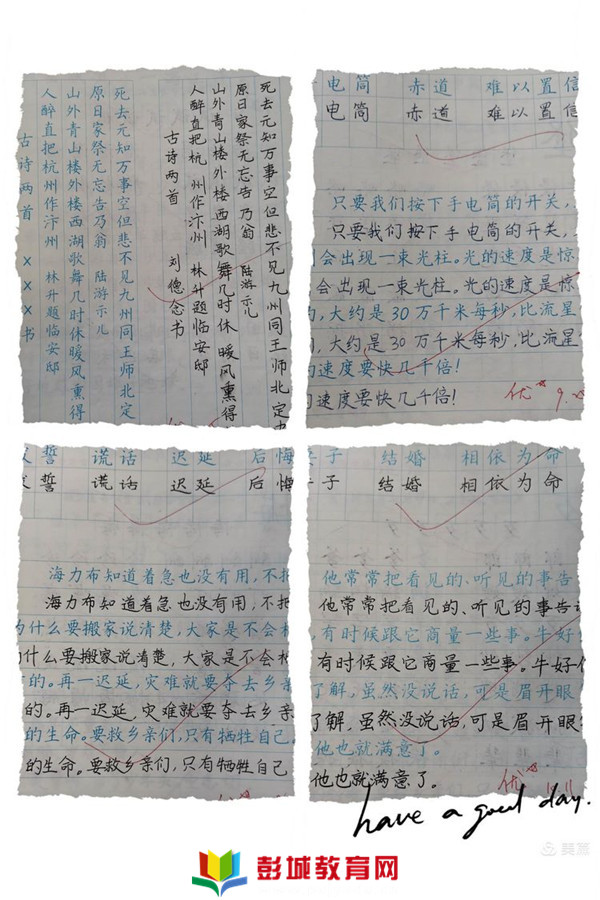 死去元知万事空但悲不见九州同王师北定
原日家祭无忘告乃翁 陆游示儿
山外青山楼外楼西湖歌舞几时休 暖风熏得
人醉直把杭州作汴州 林升题临安邸
古诗两首 刘 念书
死去元知万事空但悲不见九州同王师北定
原日家祭无忘告乃翁 陆游示儿
山外青山楼外楼西湖歌舞几时休暖风熏得
人醉直把杭州作汴州 林升题临安邸
古诗两首 ×××书
电筒 赤道 难以置信
电筒 赤道 难以置信
只要我们按下手电筒的开关,
只要我们按下手电筒的开关,
会出现一束光柱。光的速度是惊
会出现一束光柱。光的速度是惊
,大约是30万千米每秒,比流星
,大约是30万千米每秒,比流星
的速度要快几千倍!
的速度要快几千倍!
优
誓 谎话 迟延 后悔
誓 谎话 迟延 后悔
海力布知道着急也没有用,不把
海力布知道着急也没有用,不把
为什么要搬家说清楚,大家是不会相
为什么要搬家说清楚,大家是不会相
的。再一迟延,灾难就要夺去乡亲
的。再一迟延,灾难就要夺去乡亲
的生命。要救乡亲们,只有牺牲自己
的生命。要救乡亲们,只有牺牲自己
子 结婚 相依为命
子 结婚 相依为命
他常常把看见的、听见的事告
他常常把看见的、听见的事告
,有时候跟它商量一些事。牛好
有时候跟它商量一些事。牛好像
了解,虽然没说话,可是眉开眼
了解,虽然没说话,可是眉开眼
他也就满意了。
他也就满意了。
优
have a good day.
美篇
彭城教育网